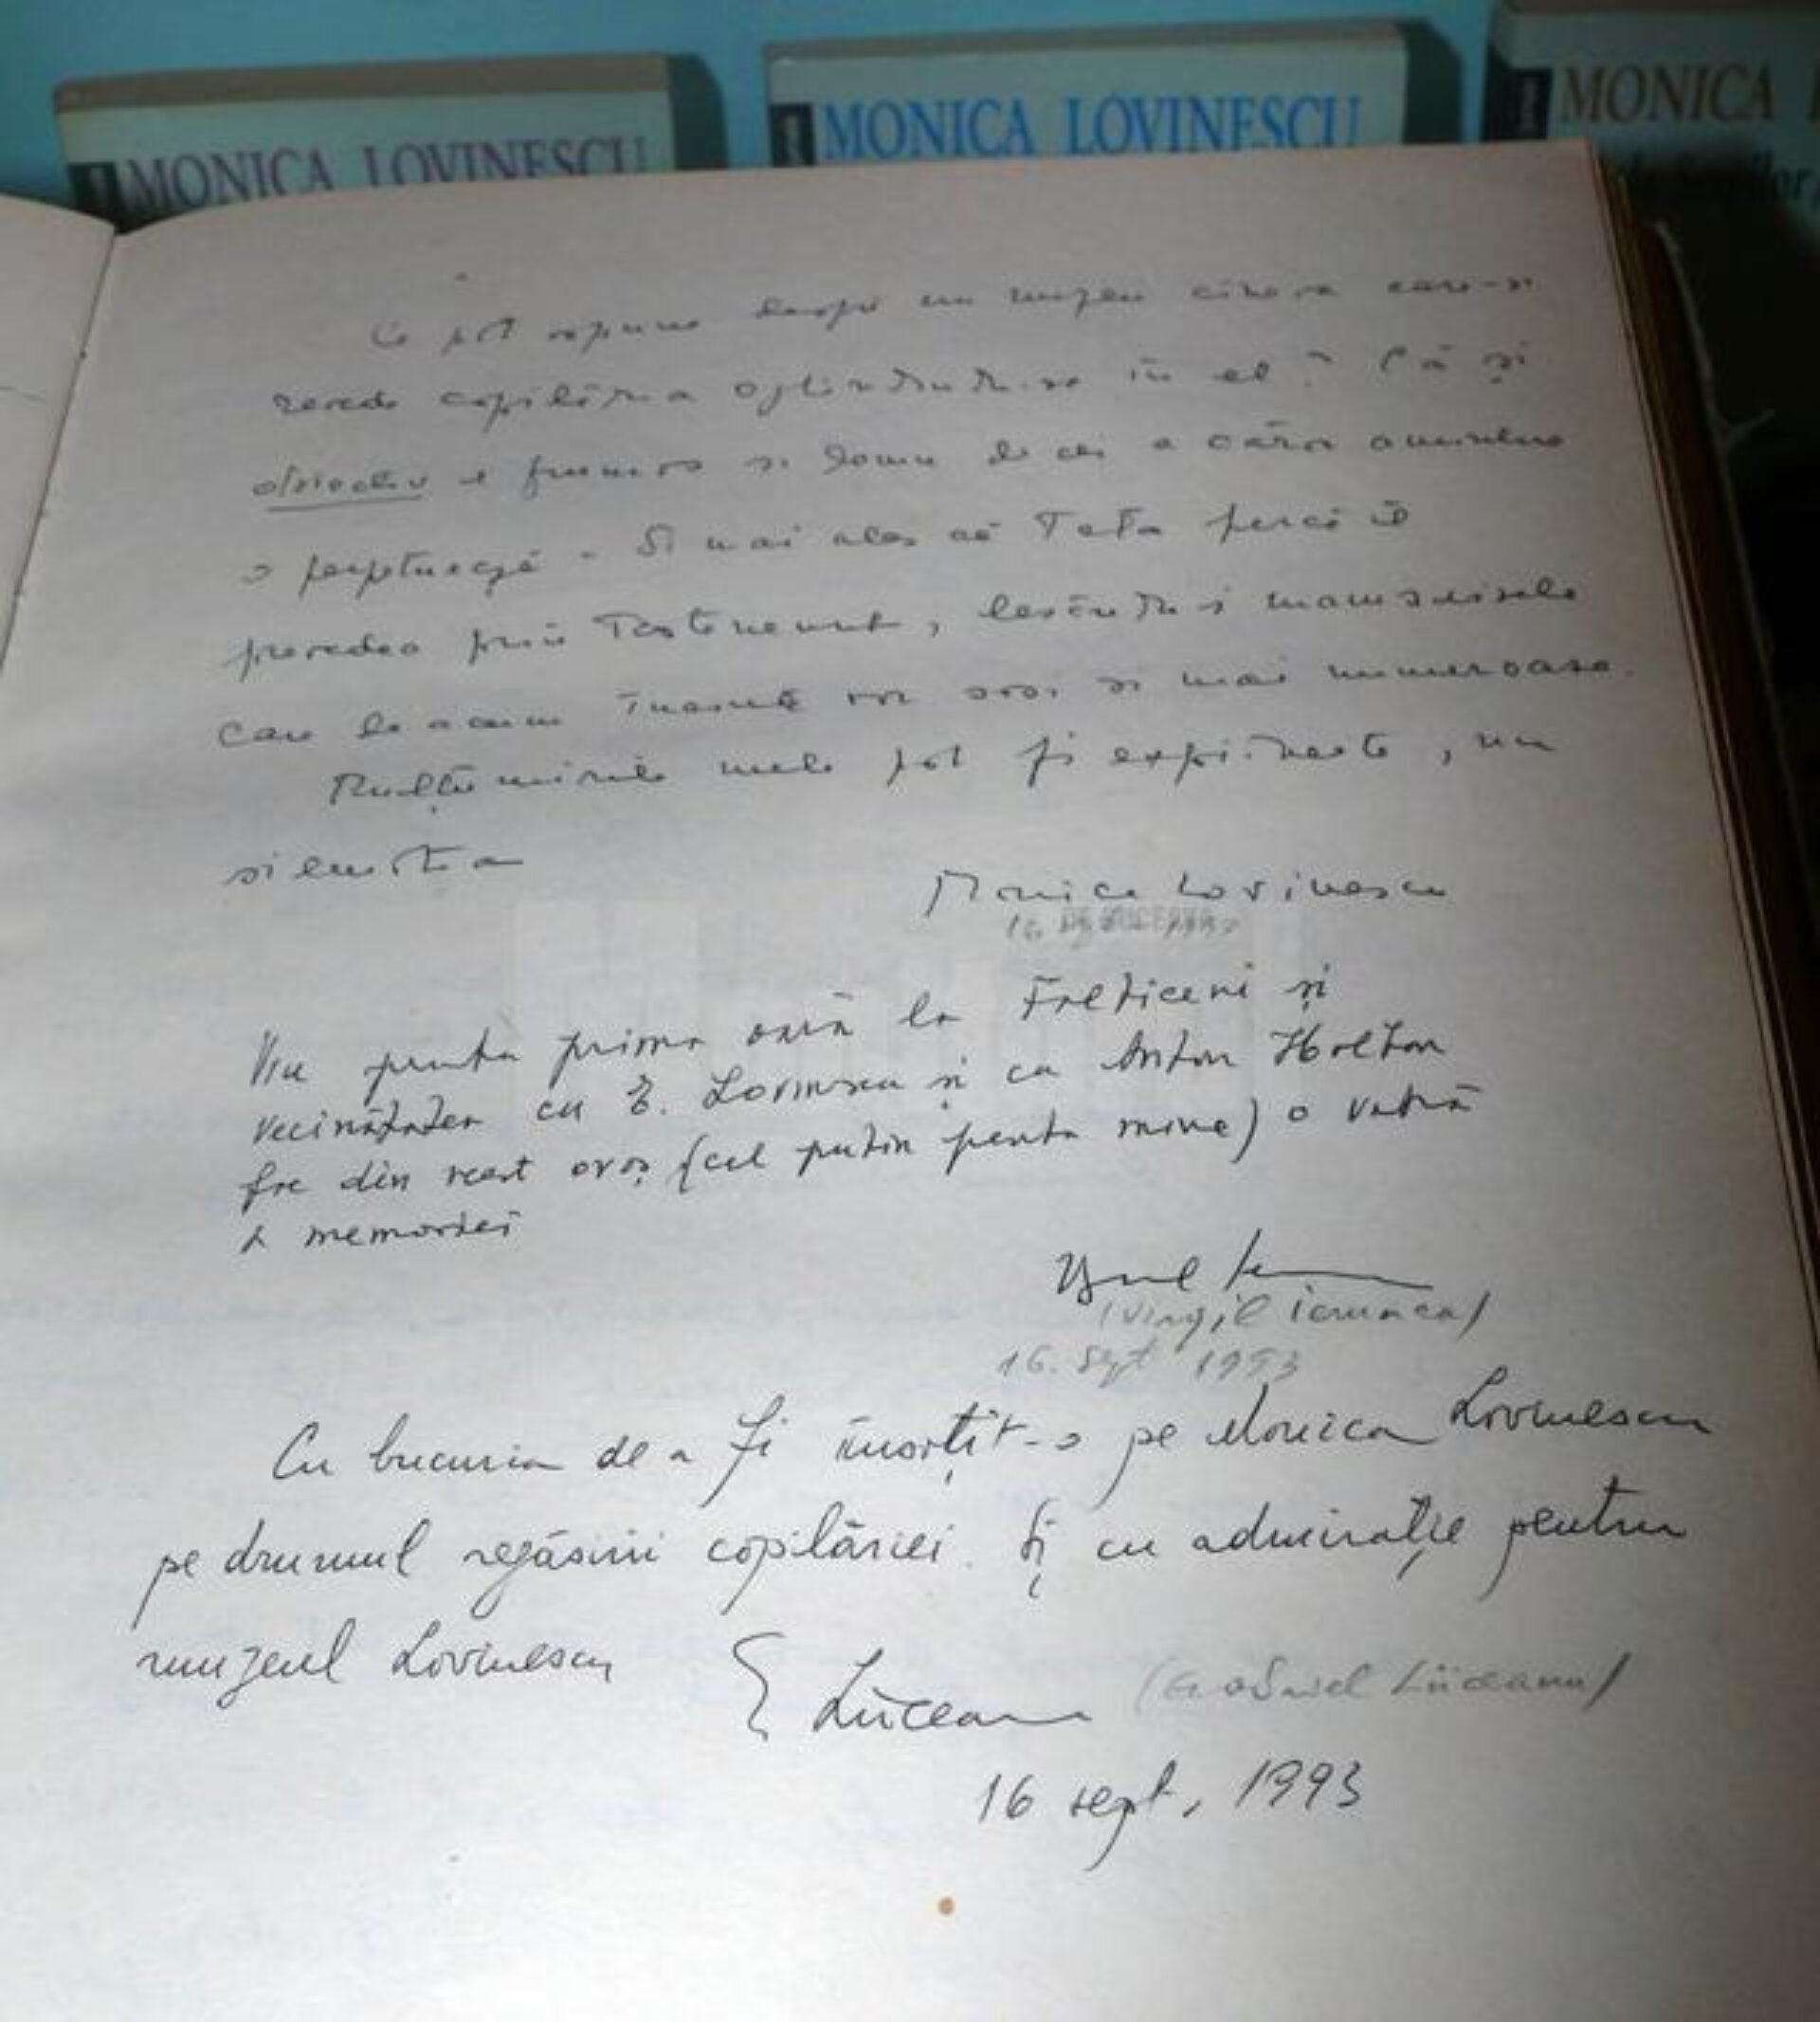 MONICA LOVINESCU
MONICA LOVINESCU
MONICA
Ce pot spune despre un muzeu cineva care-și
revede copilăria oglindindu-se în el? Că și
obiectiv e frumos și demn de cei a căror amintire
o perpetuează. Și mai ales că Tata parcă îl
prevedea prin Testament, lăsându-i manuscrisele
care de acum înainte vor sosi și mai numeroase.
Mulțumirile mele pot fi exprimate, nu
și emoția
Monica Lovinescu
16
Viu pentru prima oară la Fălticeni și
vecinătatea cu E. Lovinescu și cu Anton Holban
fac din acest oraș (cel puțin pentru mine) o vatră
a memoriei
(Virgil Ierunca)
16. Sept 1993
Cu bucuria de a fi însoțit-o pe Monica Lovinescu
pe drumul regăsirii copilăriei. Și cu admirație pentru
muzeul Lovinescu
G Liiceanu (Gabriel Liiceanu)
16 sept. 1993